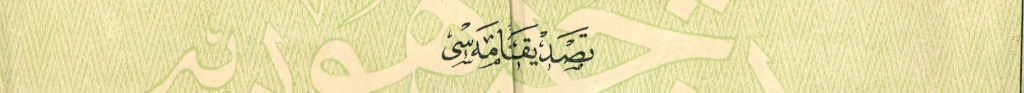 تَصْدِيقْنَامَه‌سِى